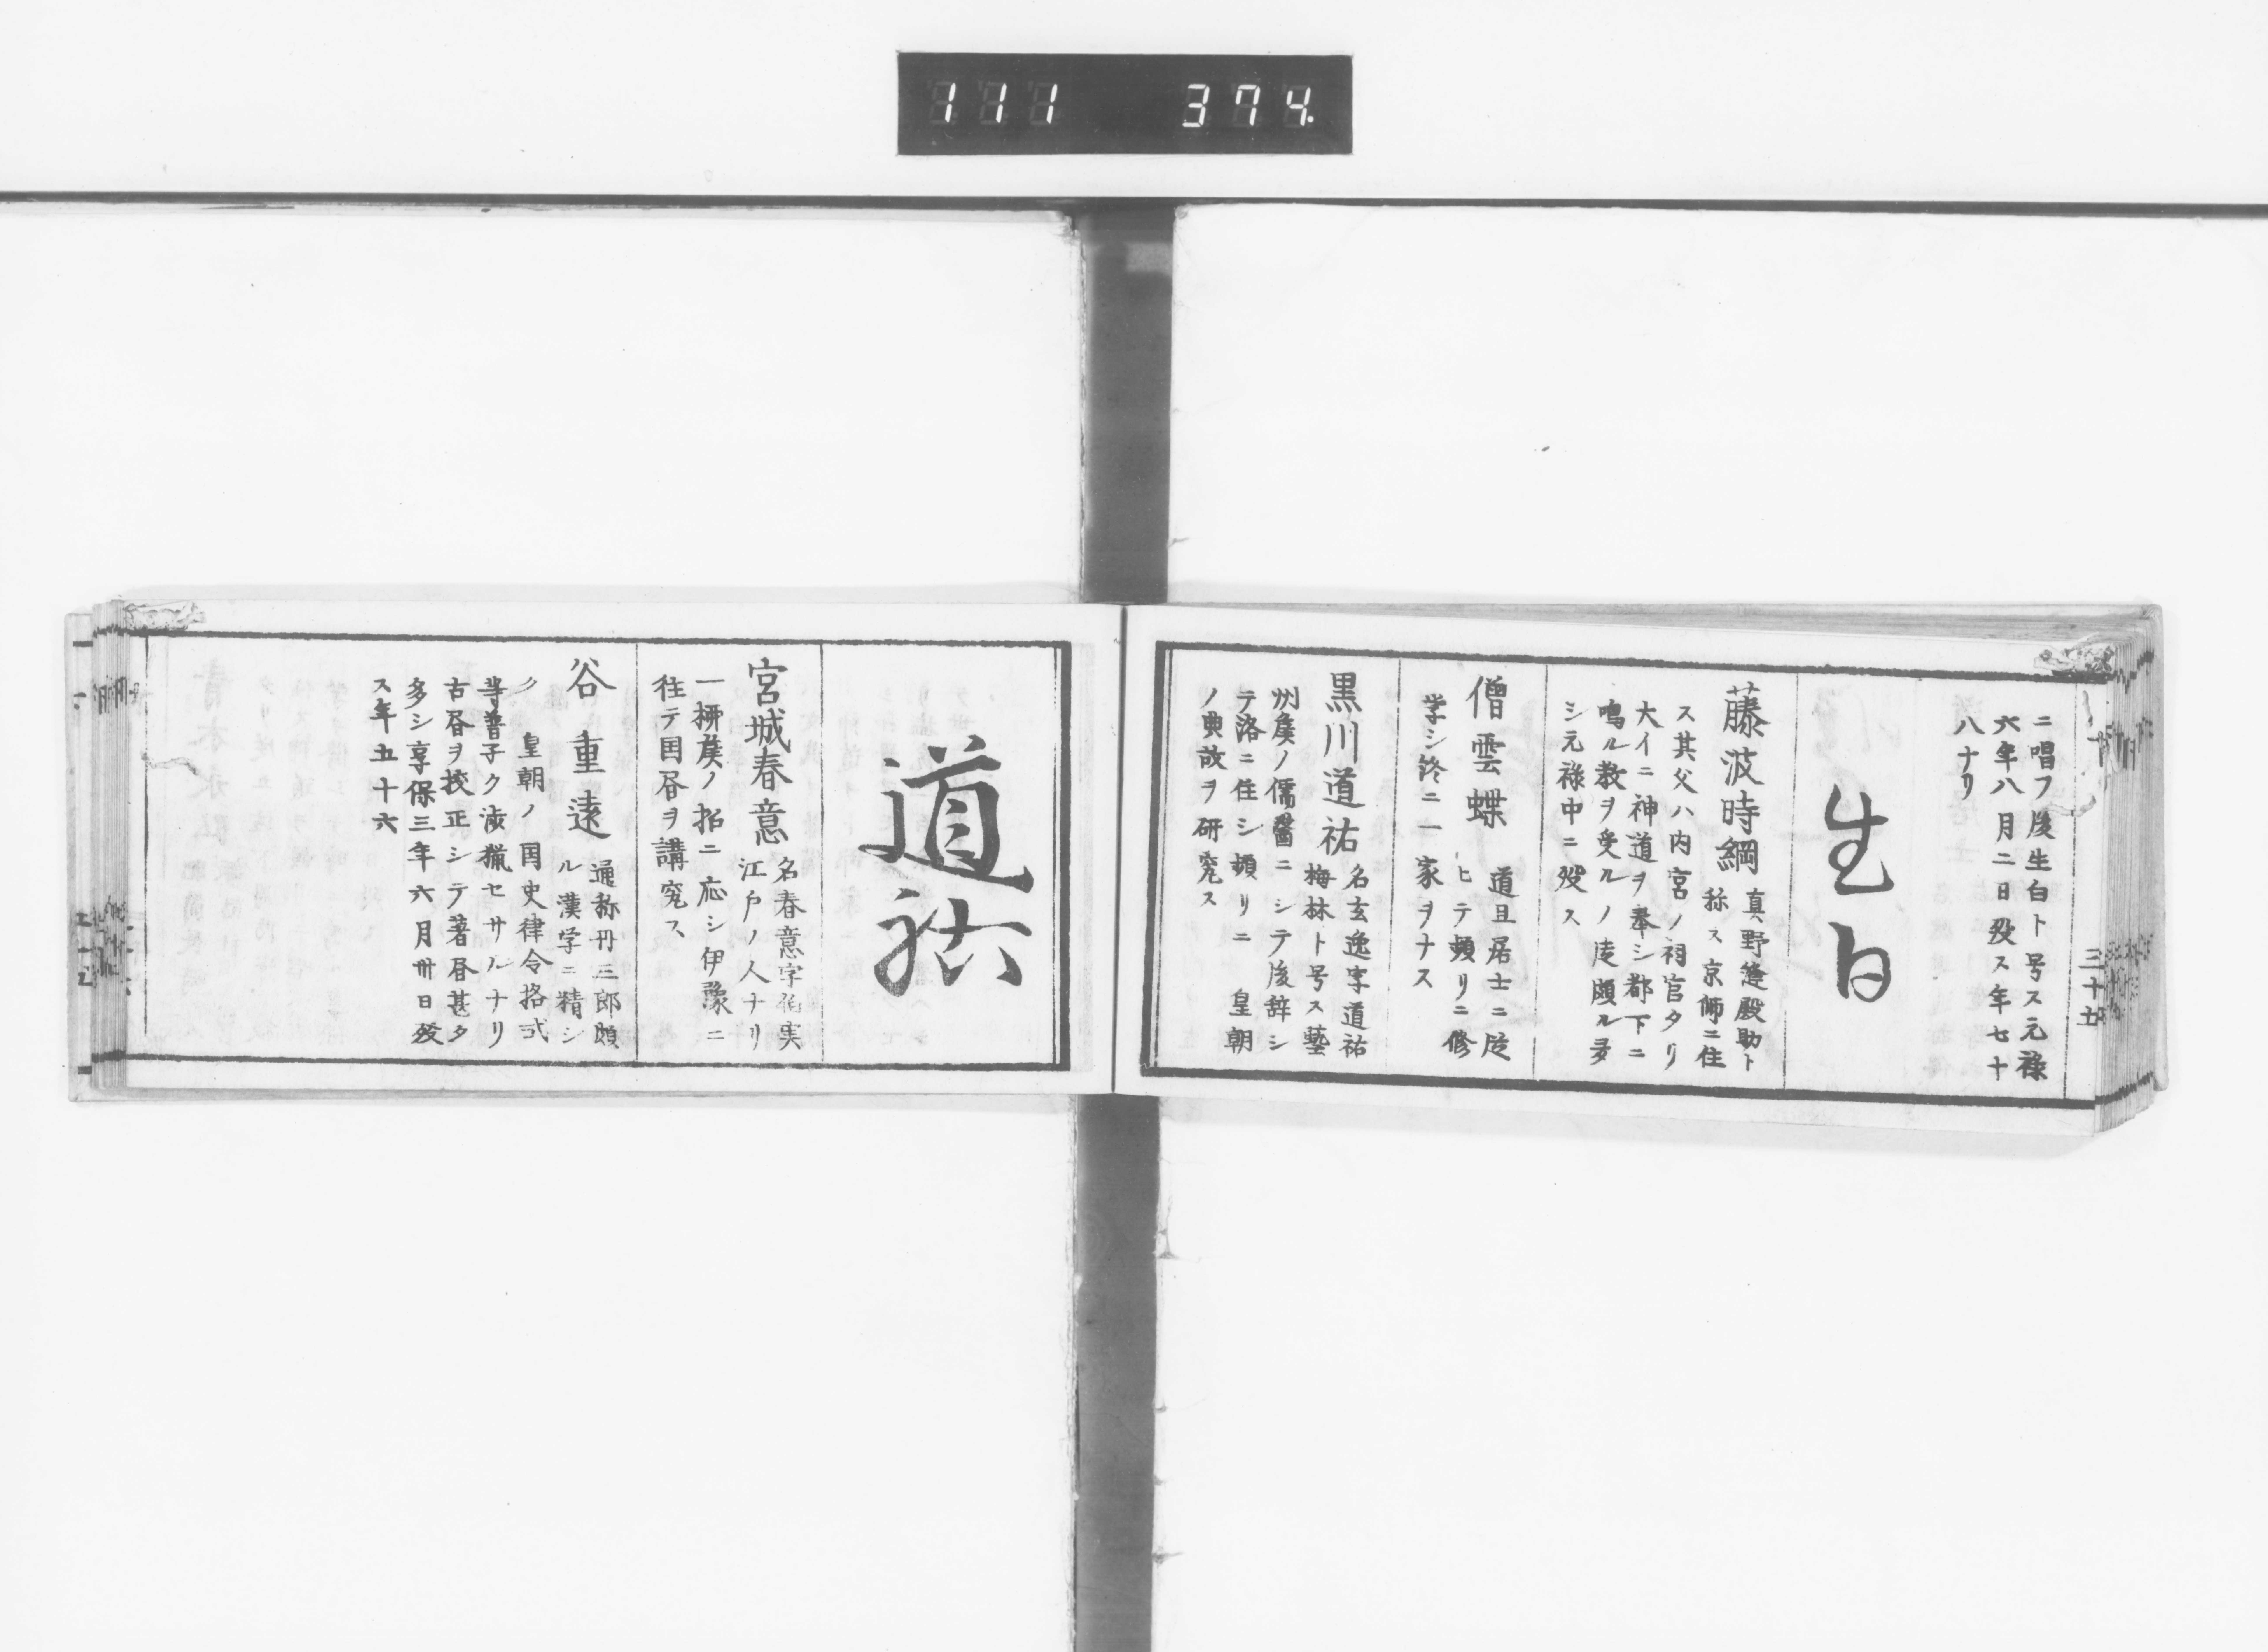 111 374.
三十五
ニ唱フ後生白ト号ス元禄
六年八月二日歿ス年七十
八ナリ
生白
藤波時綱 真野縫殿助ト
称ス京師ニ住
ス其父ハ内宮ノ祠官タリ
大イニ神道ヲ奉シ都下ニ
鳴ル教ヲ受ルノ徒頗ル多
シ元禄中ニ歿ス
僧雲蝶 道且居士ニ従
ヒテ頻リニ修
学シ終ニ一家ヲナス
黒川道祐 名玄逸字道祐
梅林ト号ス藝
州侯ノ儒醫ニシテ後辞シ
テ洛ニ住シ頻リニ 皇朝
ノ典故ヲ研究ス
道祐
宮城春意 名春意字伯実
江戸ノ人ナリ
一柳侯ノ招ニ応シ伊豫ニ
往テ国昏ヲ講究ス
谷重遠 通称丹三郎頗
ル漢学ニ精シ
ク 皇朝ノ国史律令格式
等普子ク渉猟セサルナリ
古昏ヲ挍正シテ著昏甚タ
多シ享保三年六月卅日歿
ス年五十六